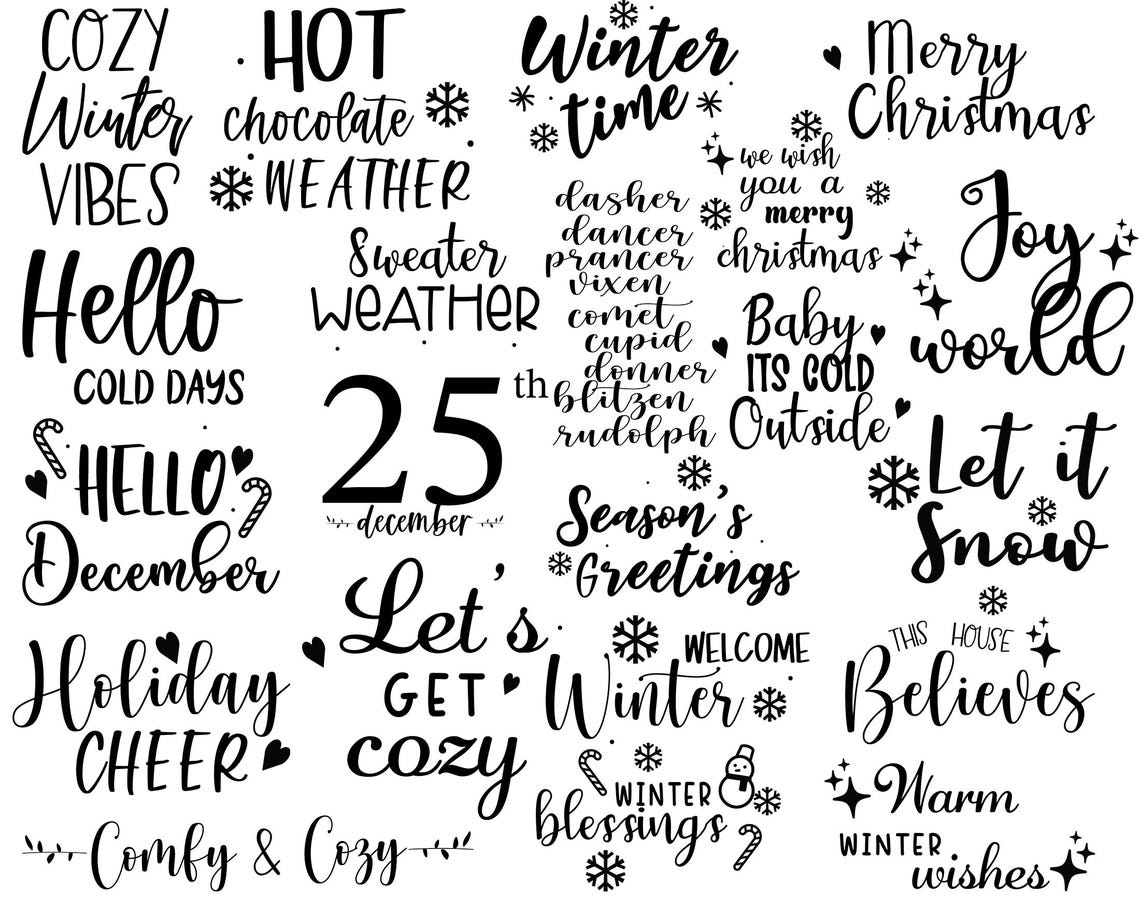 COZY
Winter
VIBES
HOT
chocolate
WEATHER
Winter
time
Merry
Christmas
we wish
you a
merry
christmas
Hello
COLD DAYS
Sweater
WEATHER
dasher
dancer
prancer
vixen
comet
cupid
donner
blitzen
rudolph
Joy
world
Baby
ITS COLD
Outside
25th
december
HELLO
December
Season's
Greetings
Let it
Snow
Holiday
CHEER
Let's
GET
cozy
WELCOME
Winter
THIS HOUSE
Believes
WINTER
blessings
Warm
WINTER
wishes
Comfy & Cozy